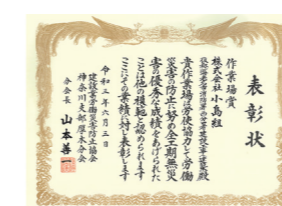 表彰状
作業場賞
株式会社小島組
貴作業場は労使協力して労働
災害の防止に努め全工期無災
害の優秀な成績をあげられた
ことは他の模範と認められます
ここにその業績に対し表彰します
令和三年六月三日
建設業労働災害防止協会
神奈川支部厚木分会
分会長 山本善一